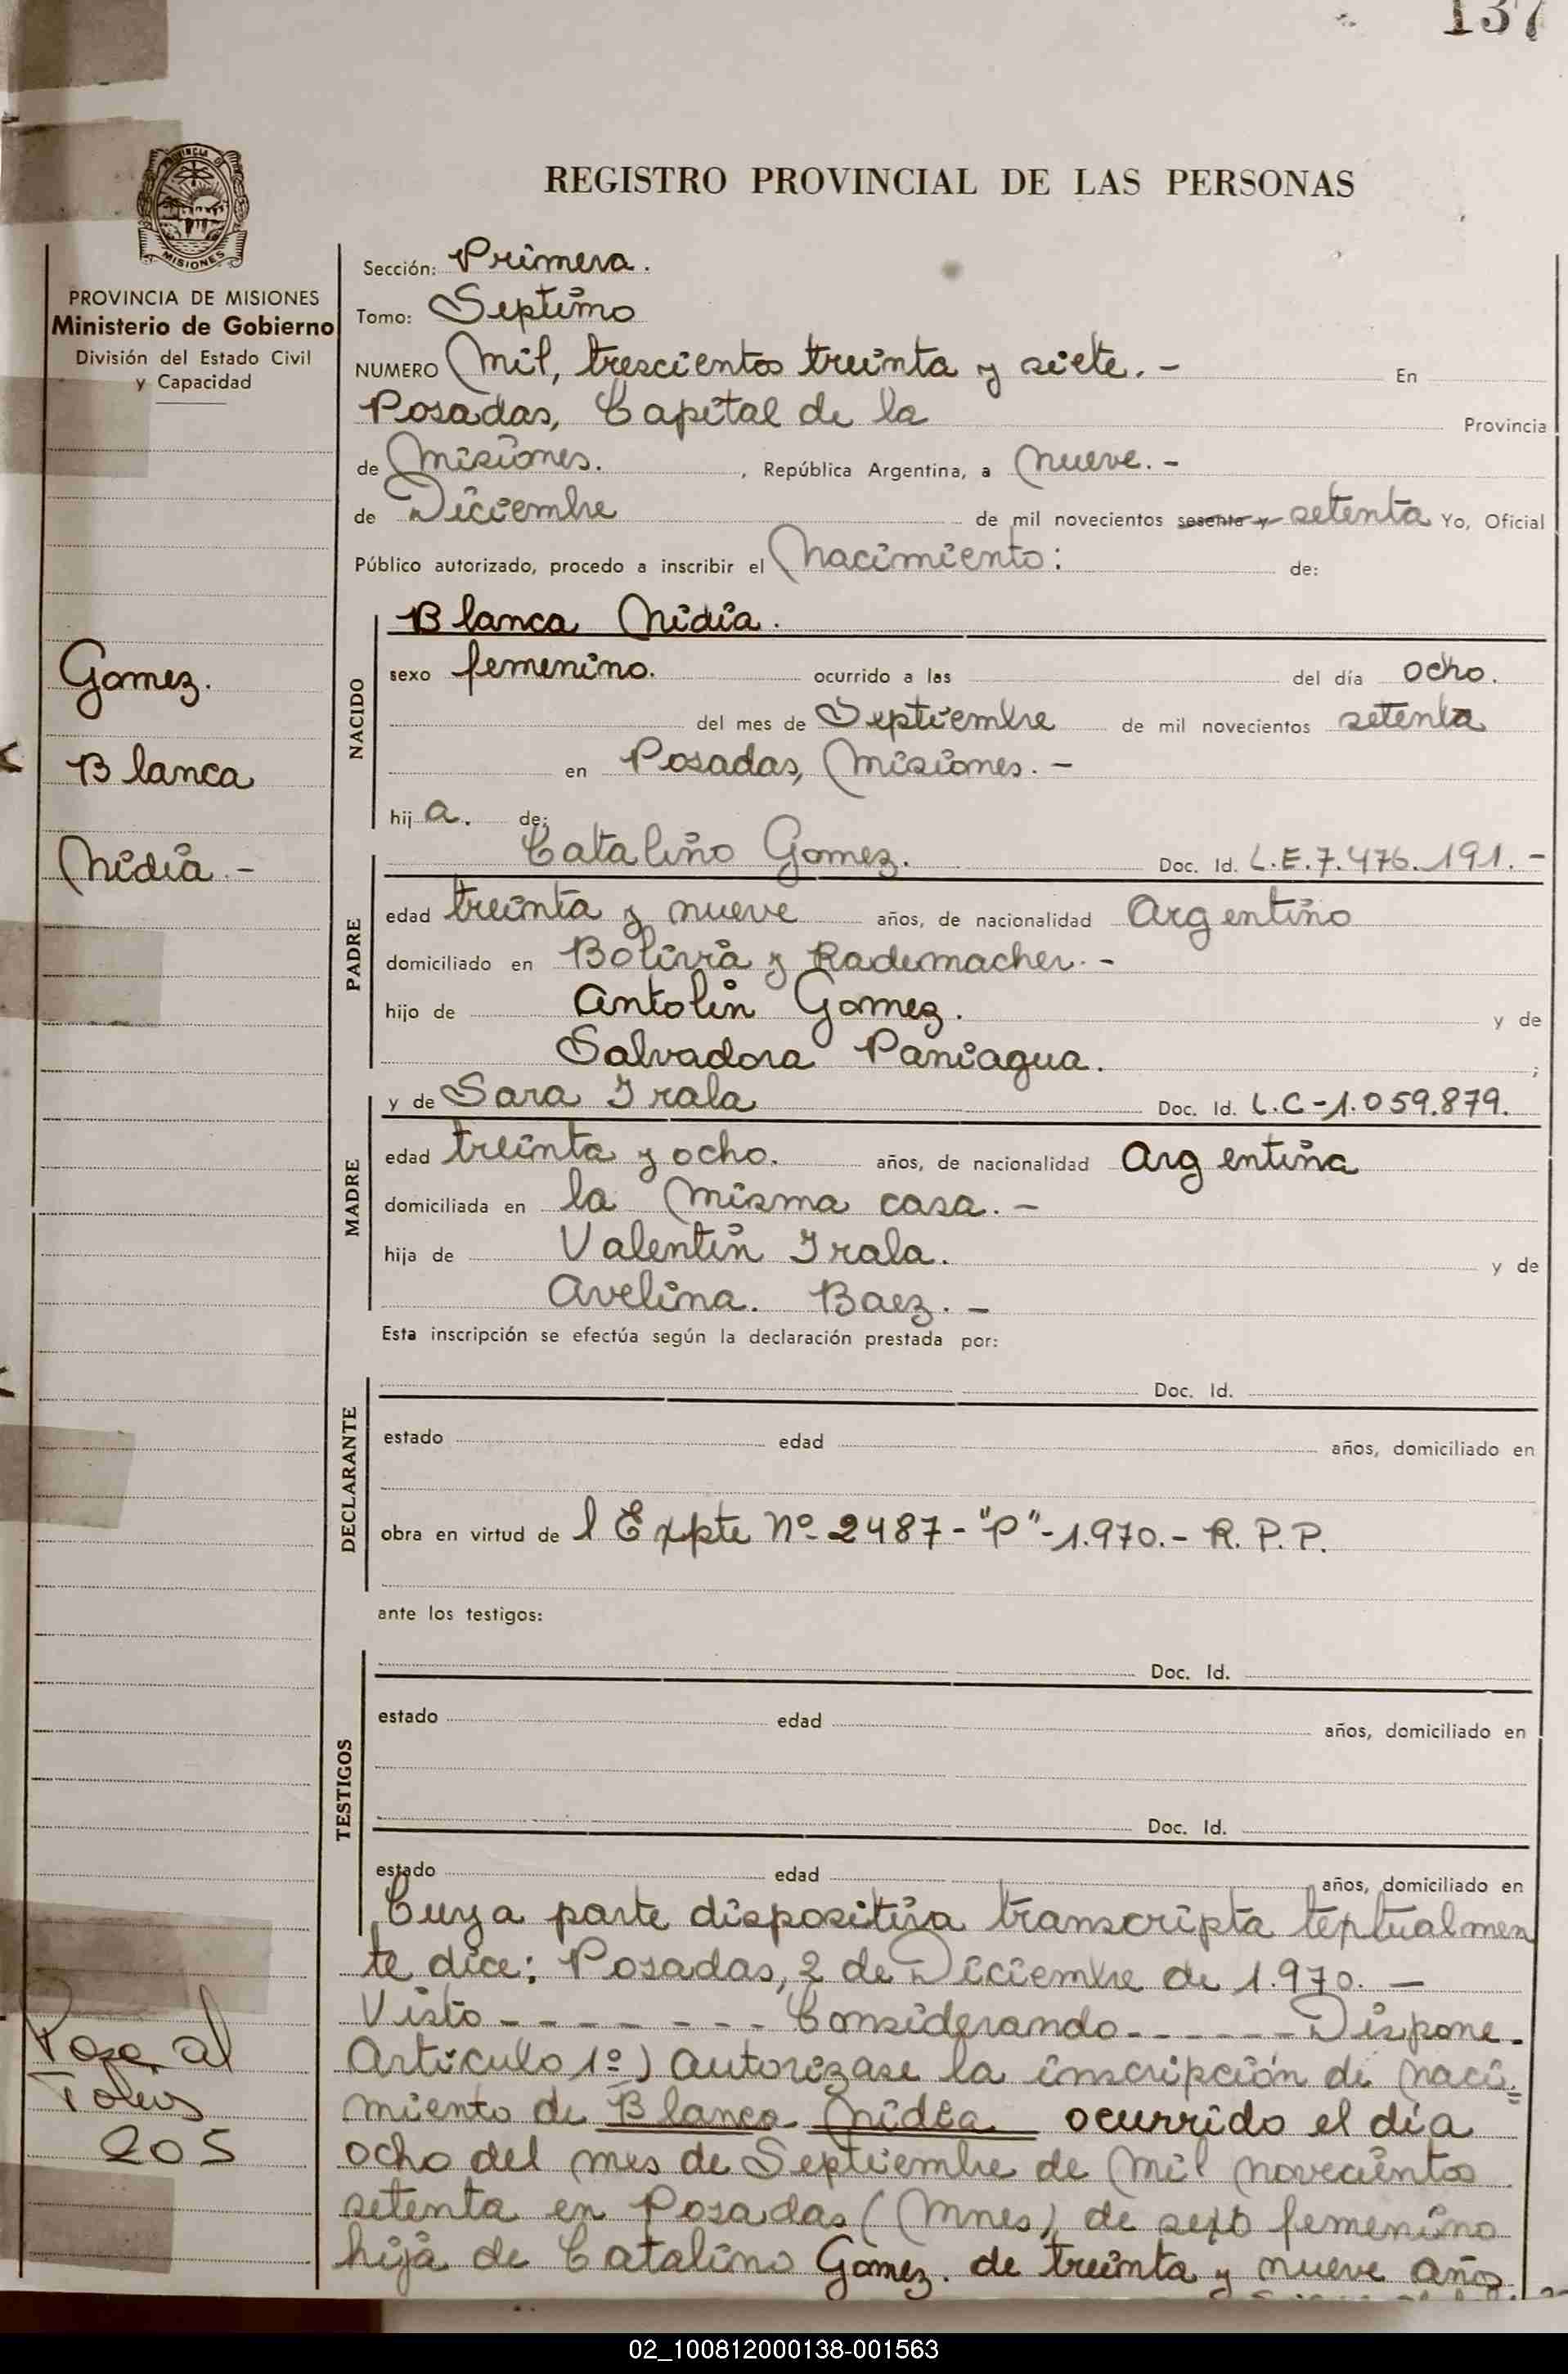 137
PROVINCIA DE MISIONES
Ministerio de Gobierno
División del Estado Civil
y Capacidad
Gomez.
Blanca
Nidia.-
Pase al
Folio
205
REGISTRO PROVINCIAL DE LAS PERSONAS
Sección: Primera.
Tomo: Septimo
NUMERO Mil, trescientos treinta y siete.- En
Posadas, Capital de la Provincia
de Misiones. , República Argentina, a Nueve.-
de Diciembre de mil novecientos sesenta y setenta Yo, Oficial
Público autorizado, procedo a inscribir el Nacimiento: de:
NACIDO
Blanca Nidia.
sexo femenino. ocurrido a las del día ocho.
del mes de Septiembre de mil novecientos setenta
en Posadas, Misiones.-
hij a. de:
PADRE
Catalino Gomez. Doc. Id. L.E.7.476.191.-
edad treinta y nueve años, de nacionalidad Argentino
domiciliado en Bolivia y Rademacher.-
hijo de Antolin Gomez. y de
Salvadora Paniagua. ;
MADRE
y de Sara Irala Doc. Id. L.C-1.059.879.
edad treinta y ocho. años, de nacionalidad Argentina
domiciliada en la misma casa.-
hija de Valentin Irala. y de
Avelina. Baez.-
Esta inscripción se efectúa según la declaración prestada por:
DECLARANTE
Doc. Id.
estado edad años, domiciliado en
obra en virtud de l Expte Nº 2487-"P"-1.970.- R.P.P.
ante los testigos:
TESTIGOS
Doc. Id.
estado edad años, domiciliado en
Doc. Id.
estado edad años, domiciliado en
Cuya parte dispositiva transcripta textualmen
te dice: Posadas, 2 de Diciembre de 1.970.-
Visto-------- Considerando------Dispone-
Articulo 1º) Autorizase la inscripción de Naci=
miento de Blanca Nidia ocurrido el día
ocho del mes de Septiembre de Mil novecientos
setenta en Posadas (Mnes) de sexo femenino
hija de Catalino Gomez. de treinta y nueve años
02_100812000138-001563